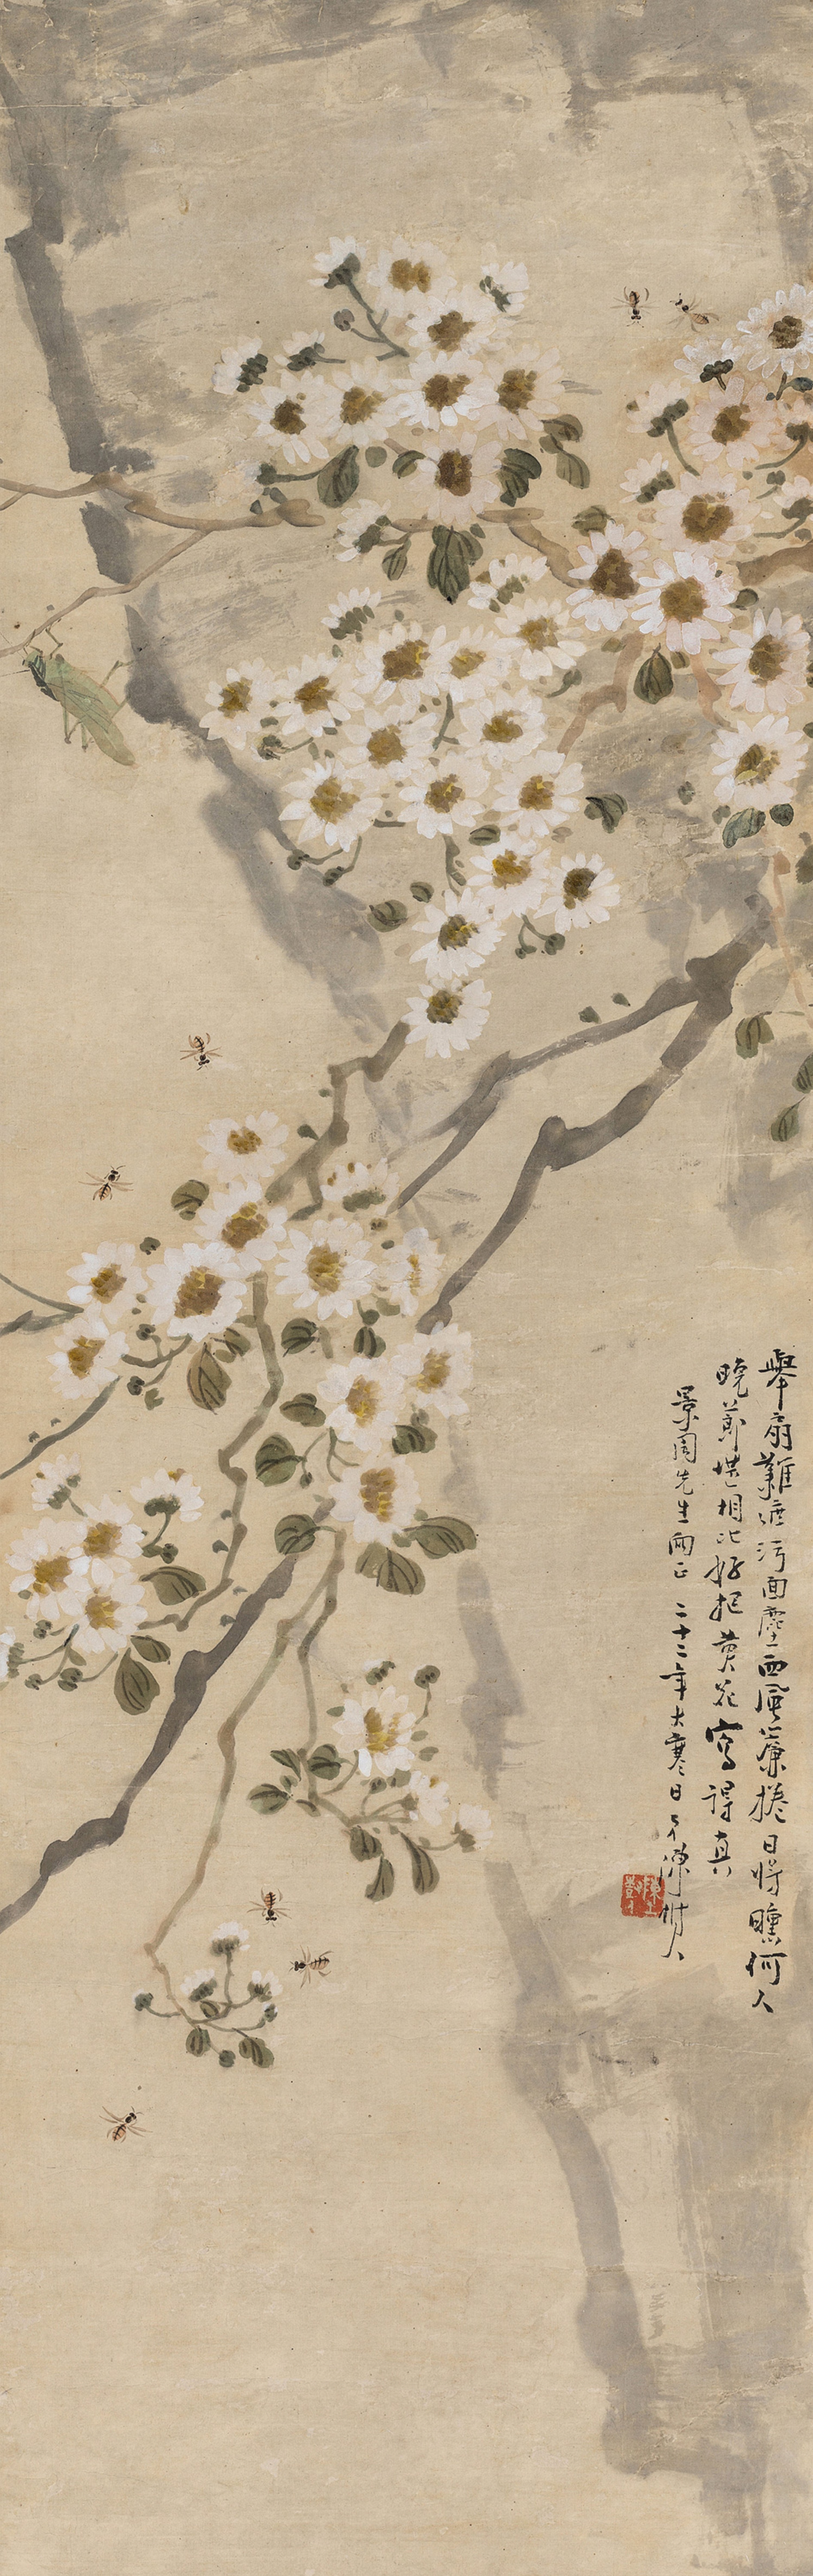 舉扇難遮污面塵西風簾捲日將曛何人
晚節堪相比好把黃花寫得真
景周先生兩正 二十二年大寒日 陳樹人